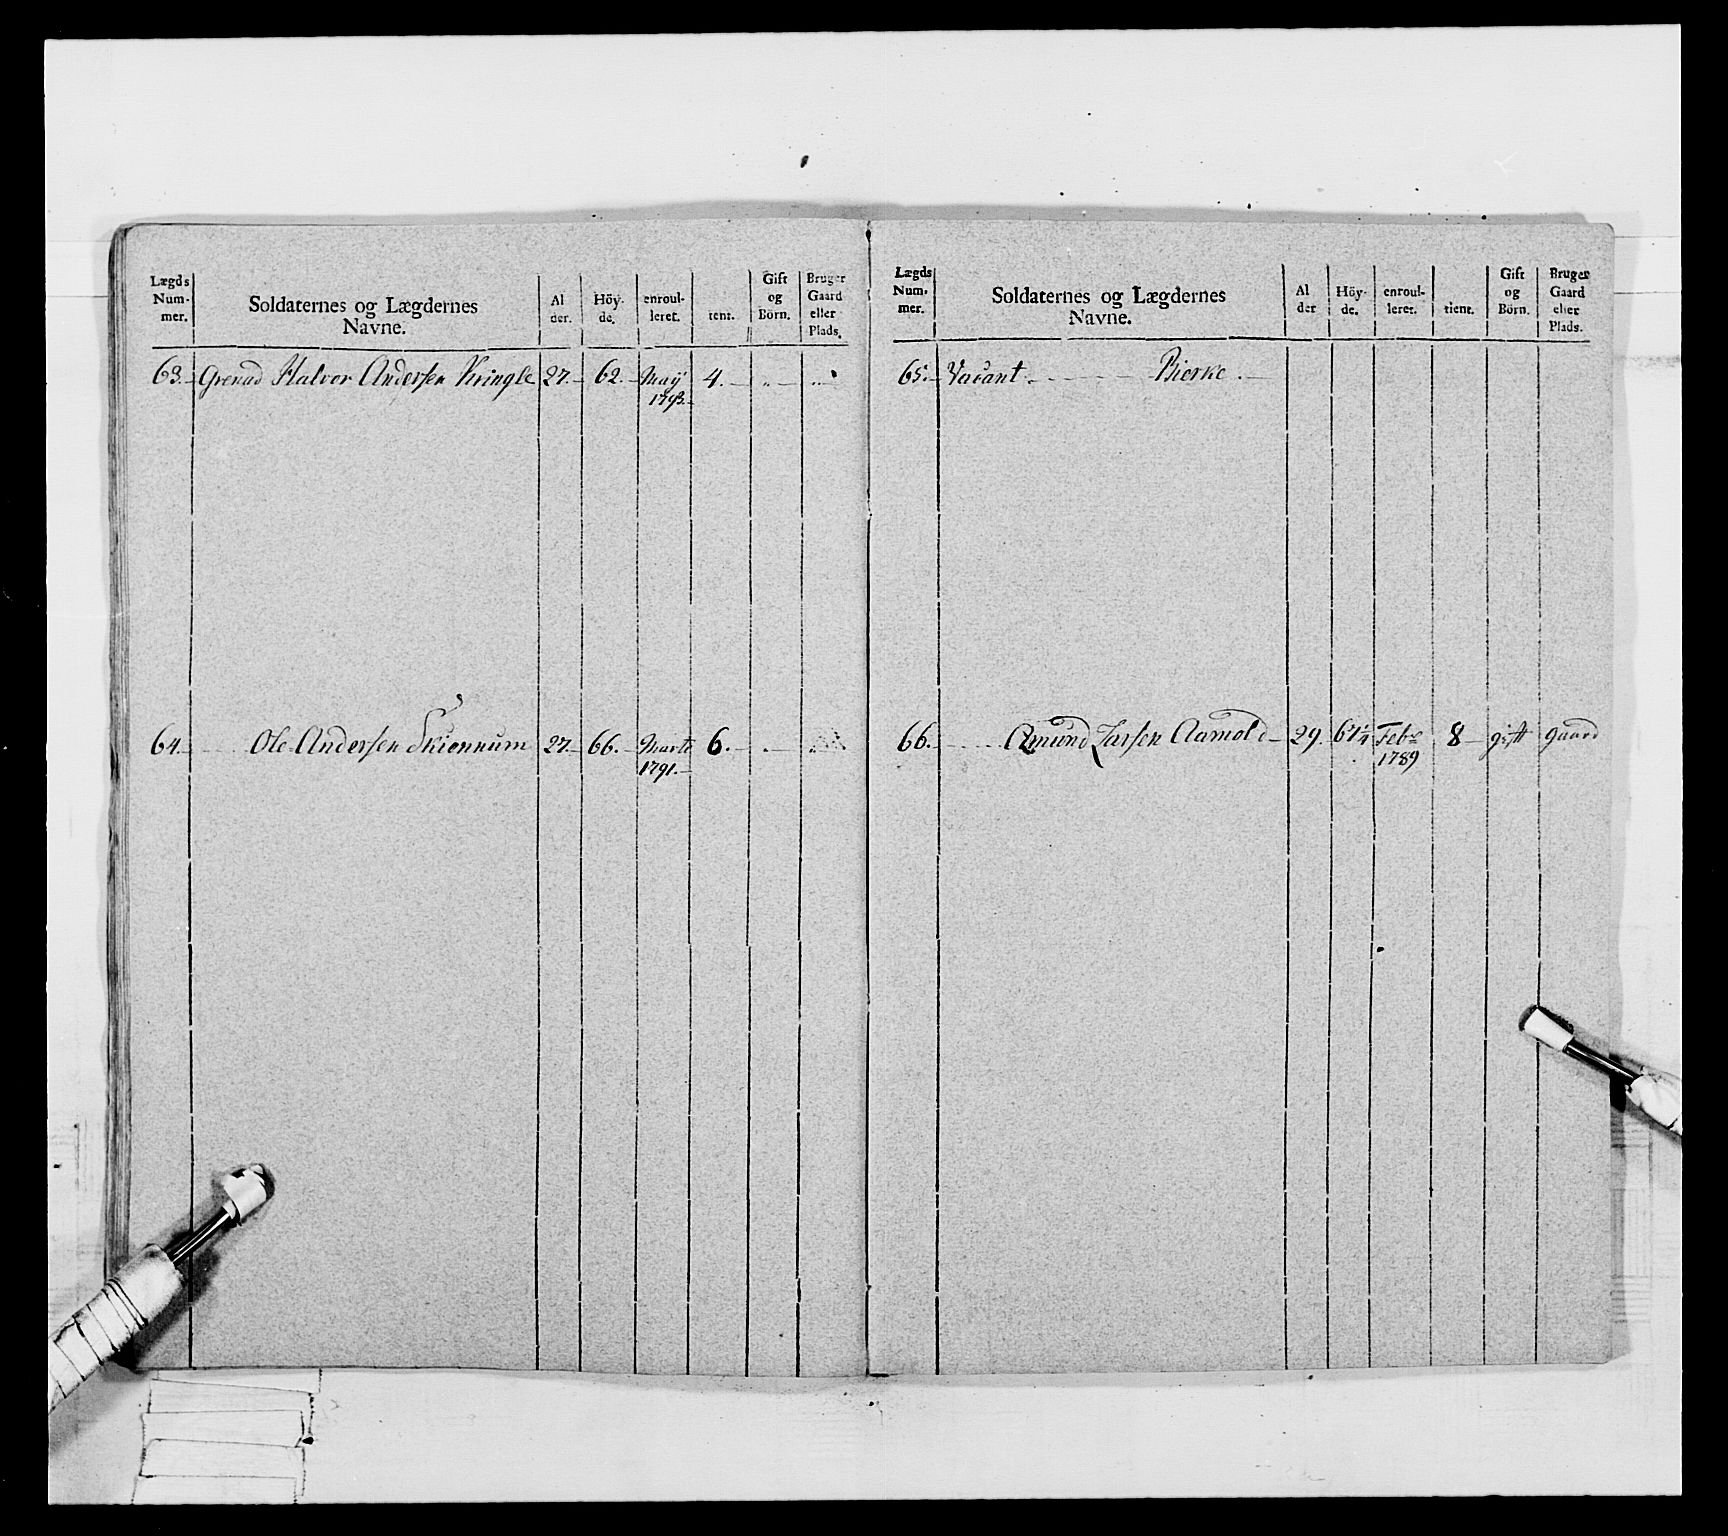 Lægds Num- mer.
Soldaternes og Lægdernes Navne.
Al der.
Höy- de.
enroul- leret.
tient.
Gift og Börn.
Bruger Gaard eller Plads.
63. Grenad Halvor Andersen Kringle 27. 62. Maÿ 4.
1793.
64. Ole Andersen Skionnum 27. 66. Marti 6.
1791.
Lægds Num- mer.
Soldaternes og Lægdernes Navne.
Al der
Höy- de.
enroul- leret.
tient.
Gift og Börn.
Bruger Gaard eller Plads.
65. Vacant Bierke
66. Amund Larsen Aamold 29. Febr 8 gift gaard
1789